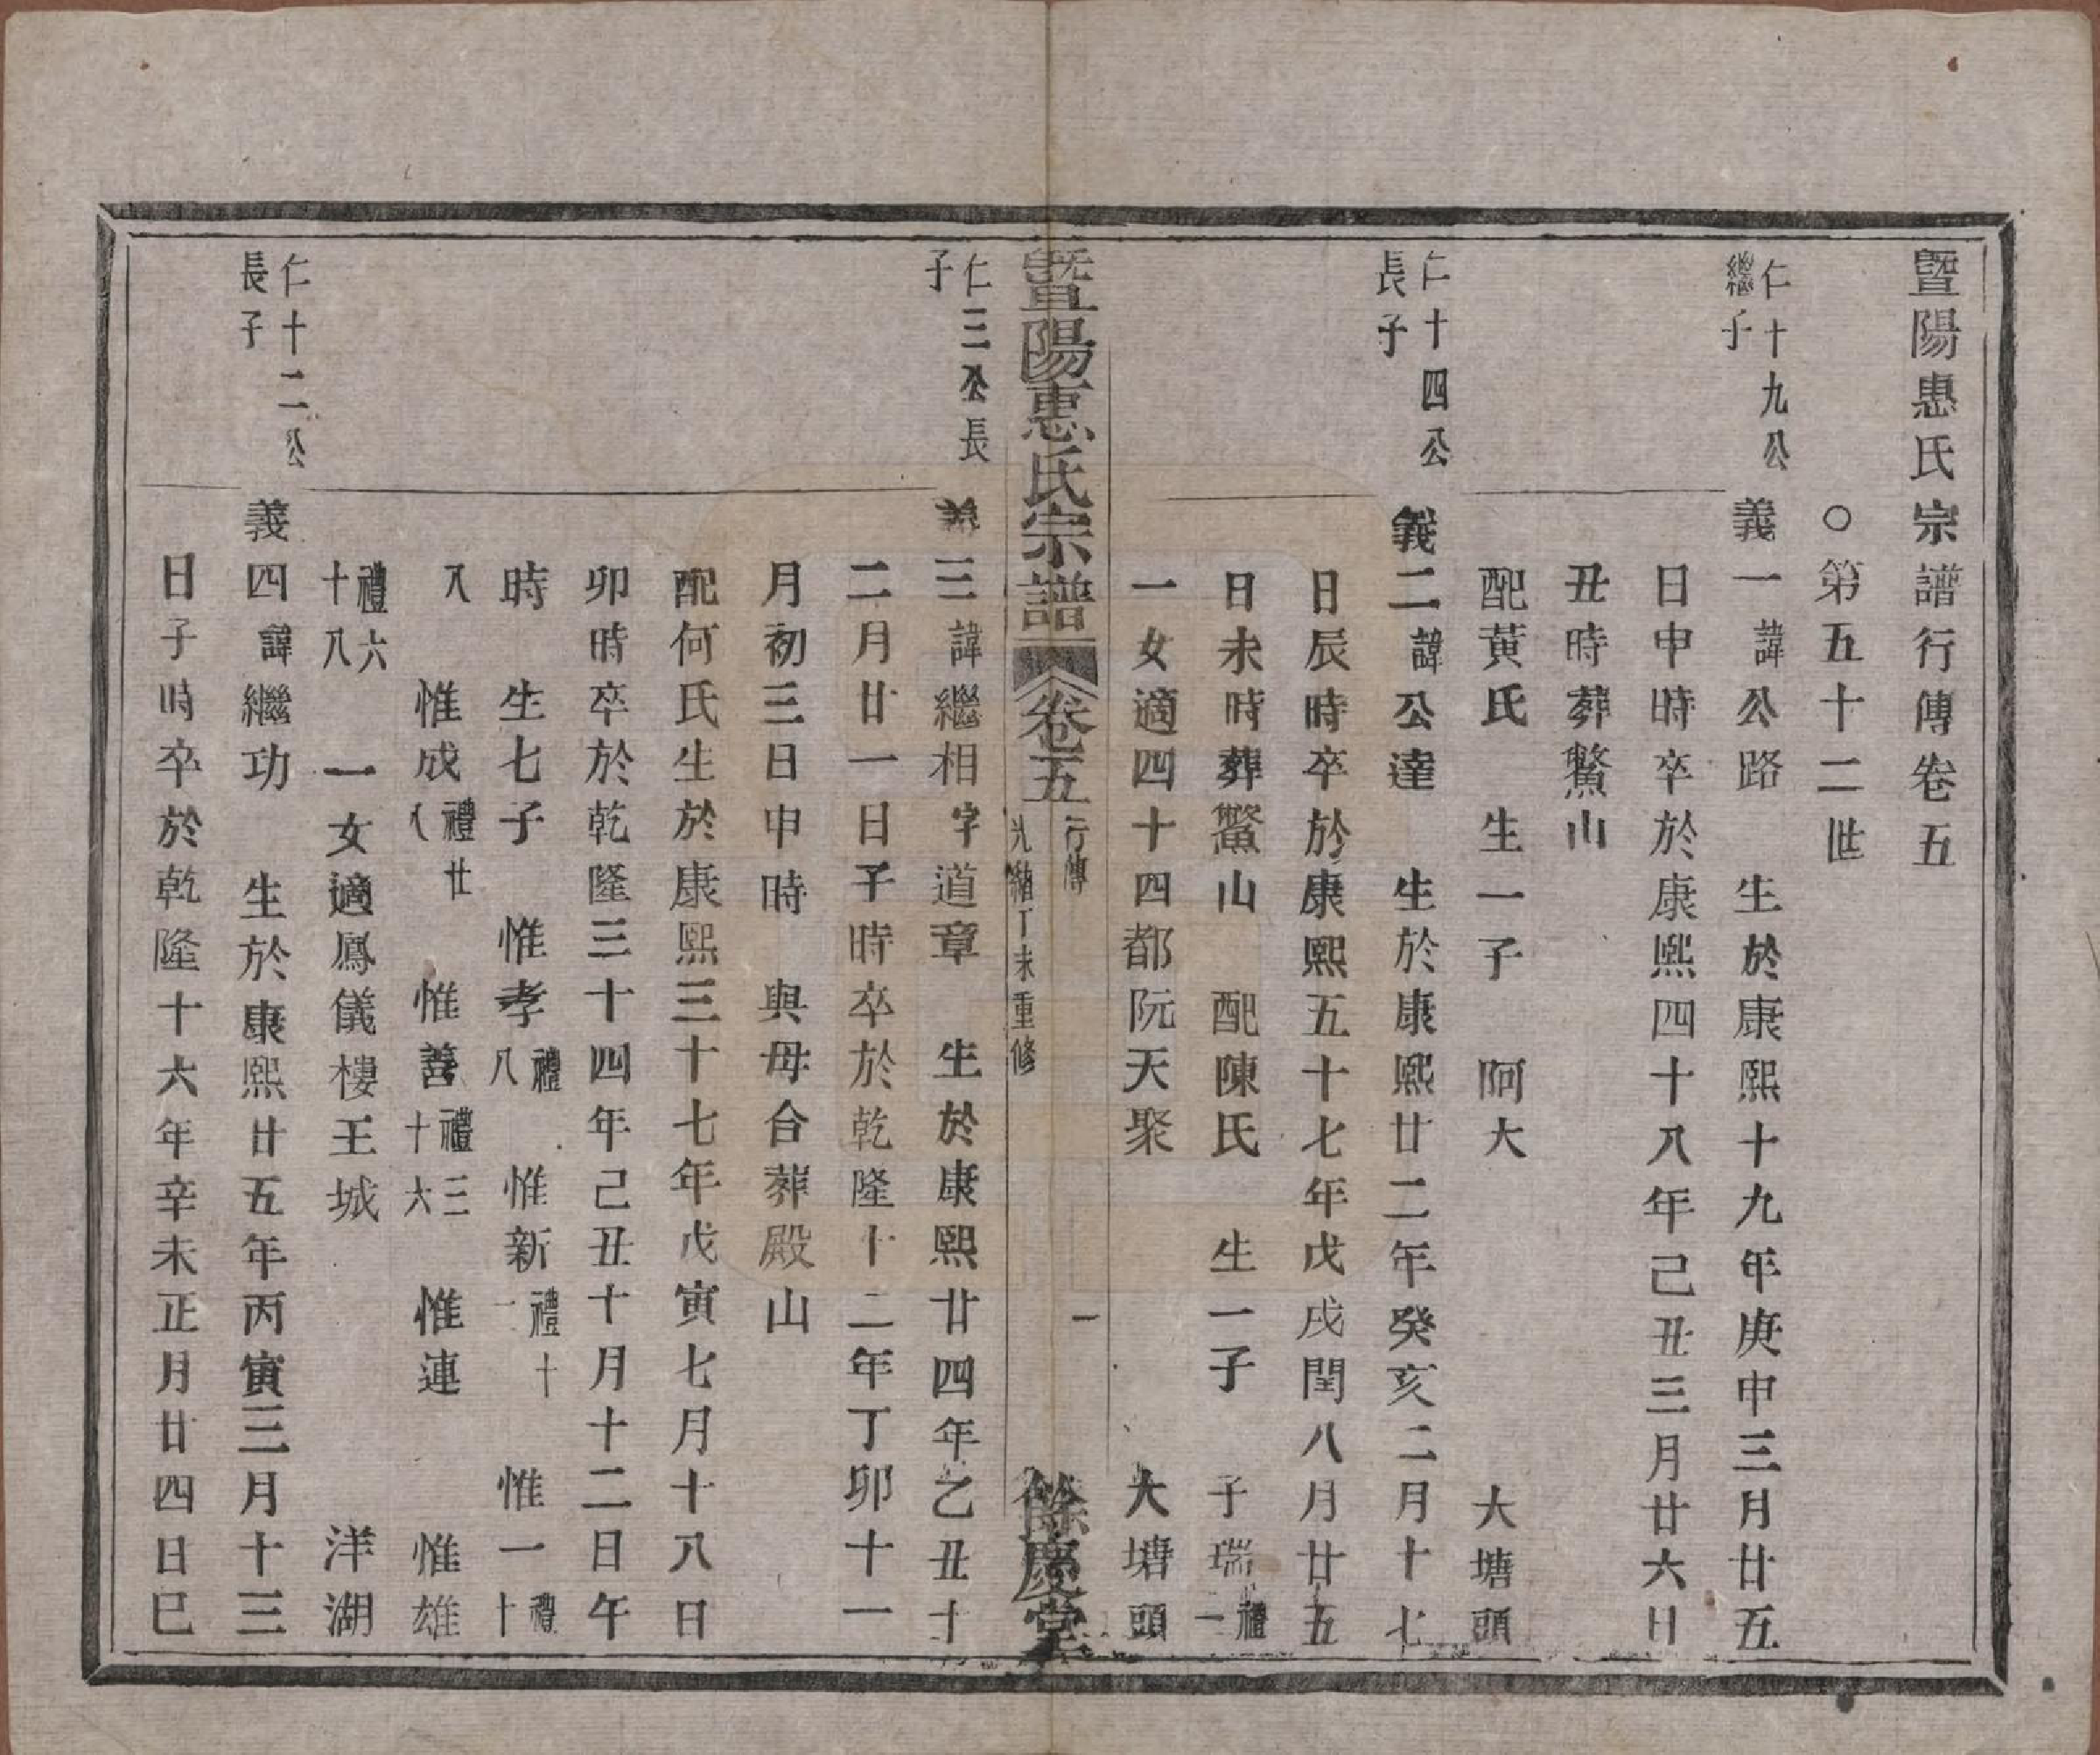 暨陽惠氏宗譜行傳卷五
○第五十二世
仁十九公
繼子
義一諱公路 生於康熙十九年庚申三月廿五
日申時卒於康熙四十八年己丑三月廿六日
丑時葬鰲山
配黃氏 生一子 阿大 大塘頭
仁十四公
長子
義二諱公達 生於康熙廿二年癸亥二月十七
日辰時卒於康熙五十七年戊戌閏八月廿五
日未時葬鱉山 配陳氏 生一子 子瑞禮一
一女適四十四都阮天聚 大塘頭
暨陽惠氏宗譜 卷五 行傳 一 光緒丁未重修 餘慶堂
仁三公長
子
義三諱繼相字道章 生於康熙廿四年乙丑十
二月廿一日子時卒於乾隆十二年丁卯十一
月初三日申時 與母合葬殿山
配何氏生於康熙三十七年戊寅七月十八日
卯時卒於乾隆三十四年己丑十月十二日午
時 生七子 惟孝禮八 惟新禮十一 惟一禮十
八 惟成禮廿八 惟善禮三十六 惟連 惟雄
禮六十八 一女適鳳儀樓王城 洋湖
仁十二公
長子
義四諱繼功 生於康熙廿五年丙寅三月十三
日子時卒於乾隆十六年辛未正月廿四日巳